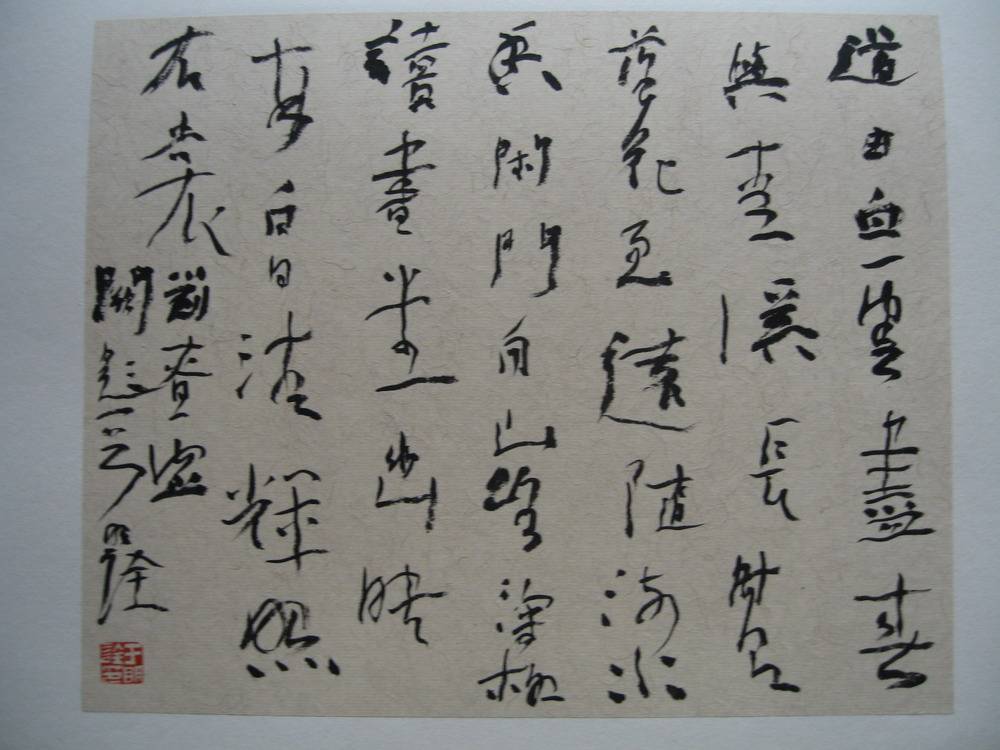 道由白雲盡春
與青溪長時有
落花至遠隨流水
香閑門向山路深柳
讀書堂幽映
每白日清輝照
衣裳劉昚虛
闕題于明詮